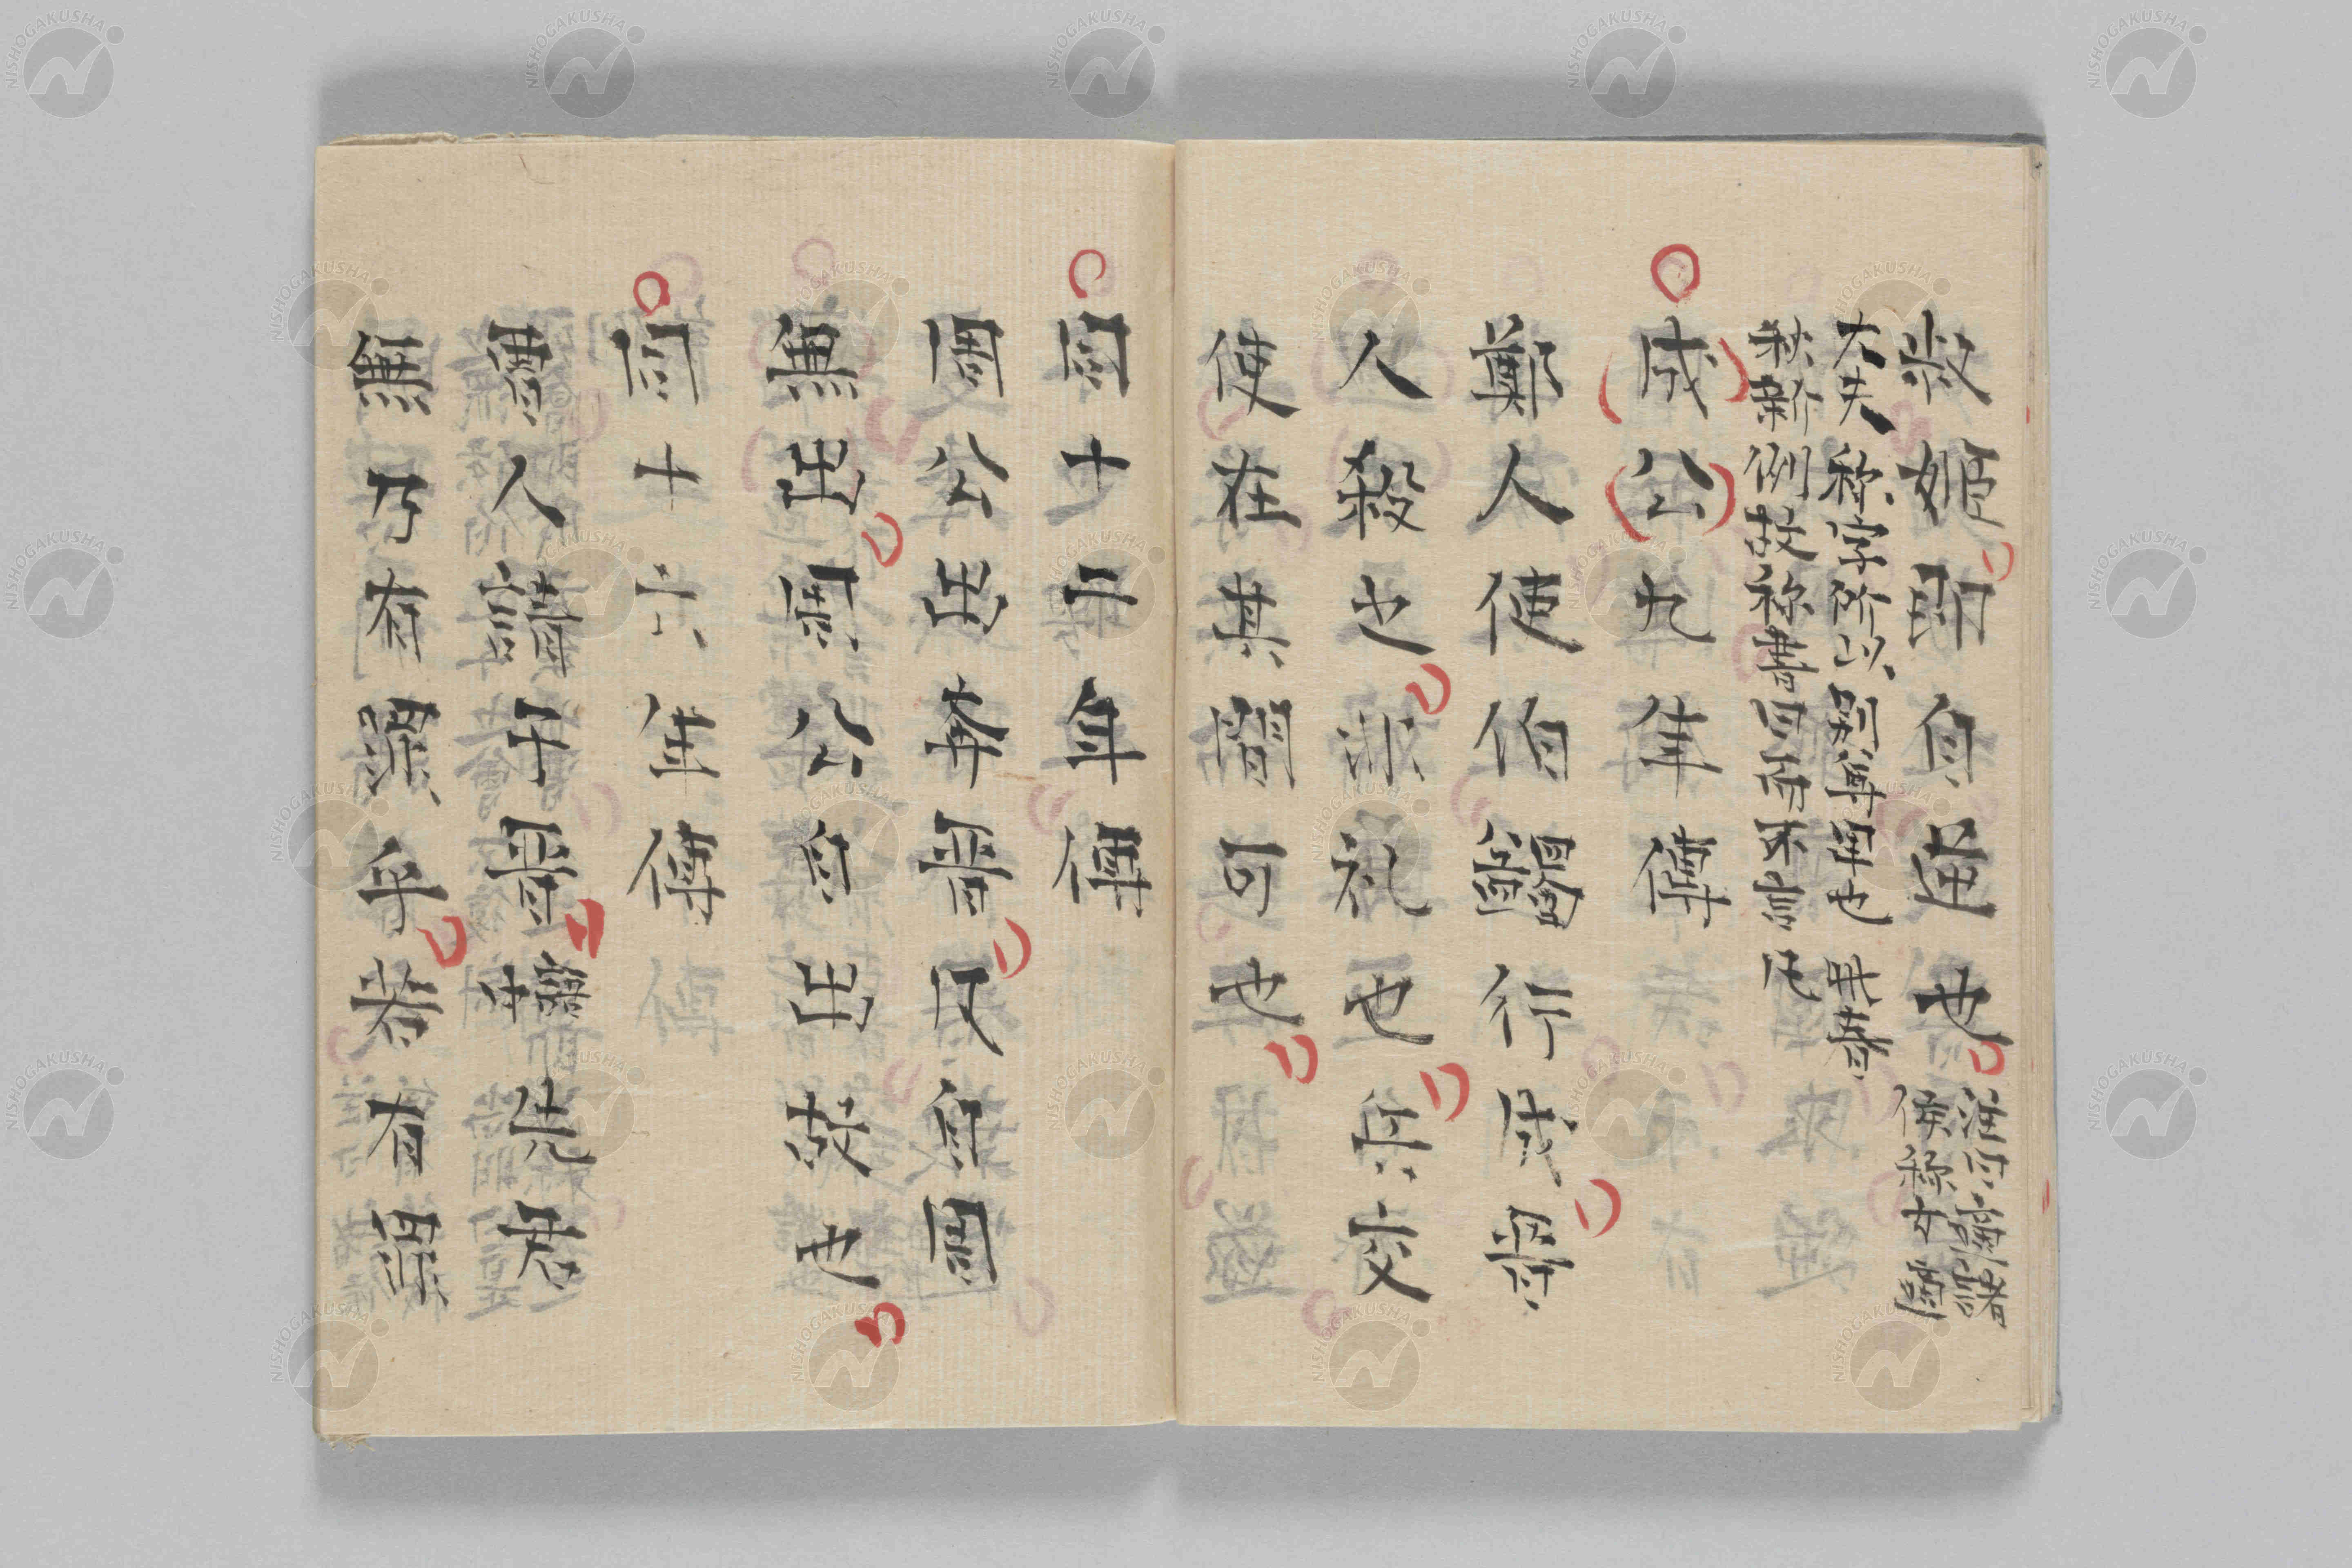 叔姫卿自逆也 注云適諸
侯称女適
大夫称字所以別尊卑也此春
秋新例故称書曰而不言凡
成公九年傳
鄭人使伯蠲行成晉
人殺之非礼也兵交
使在其間可也
同十二年傳
周公出奔晉凡自周
無出周公自出故也
同十六年傳
曹人請于晉曰先君
無乃有罪乎若有罪
NISHOGAKUSHA